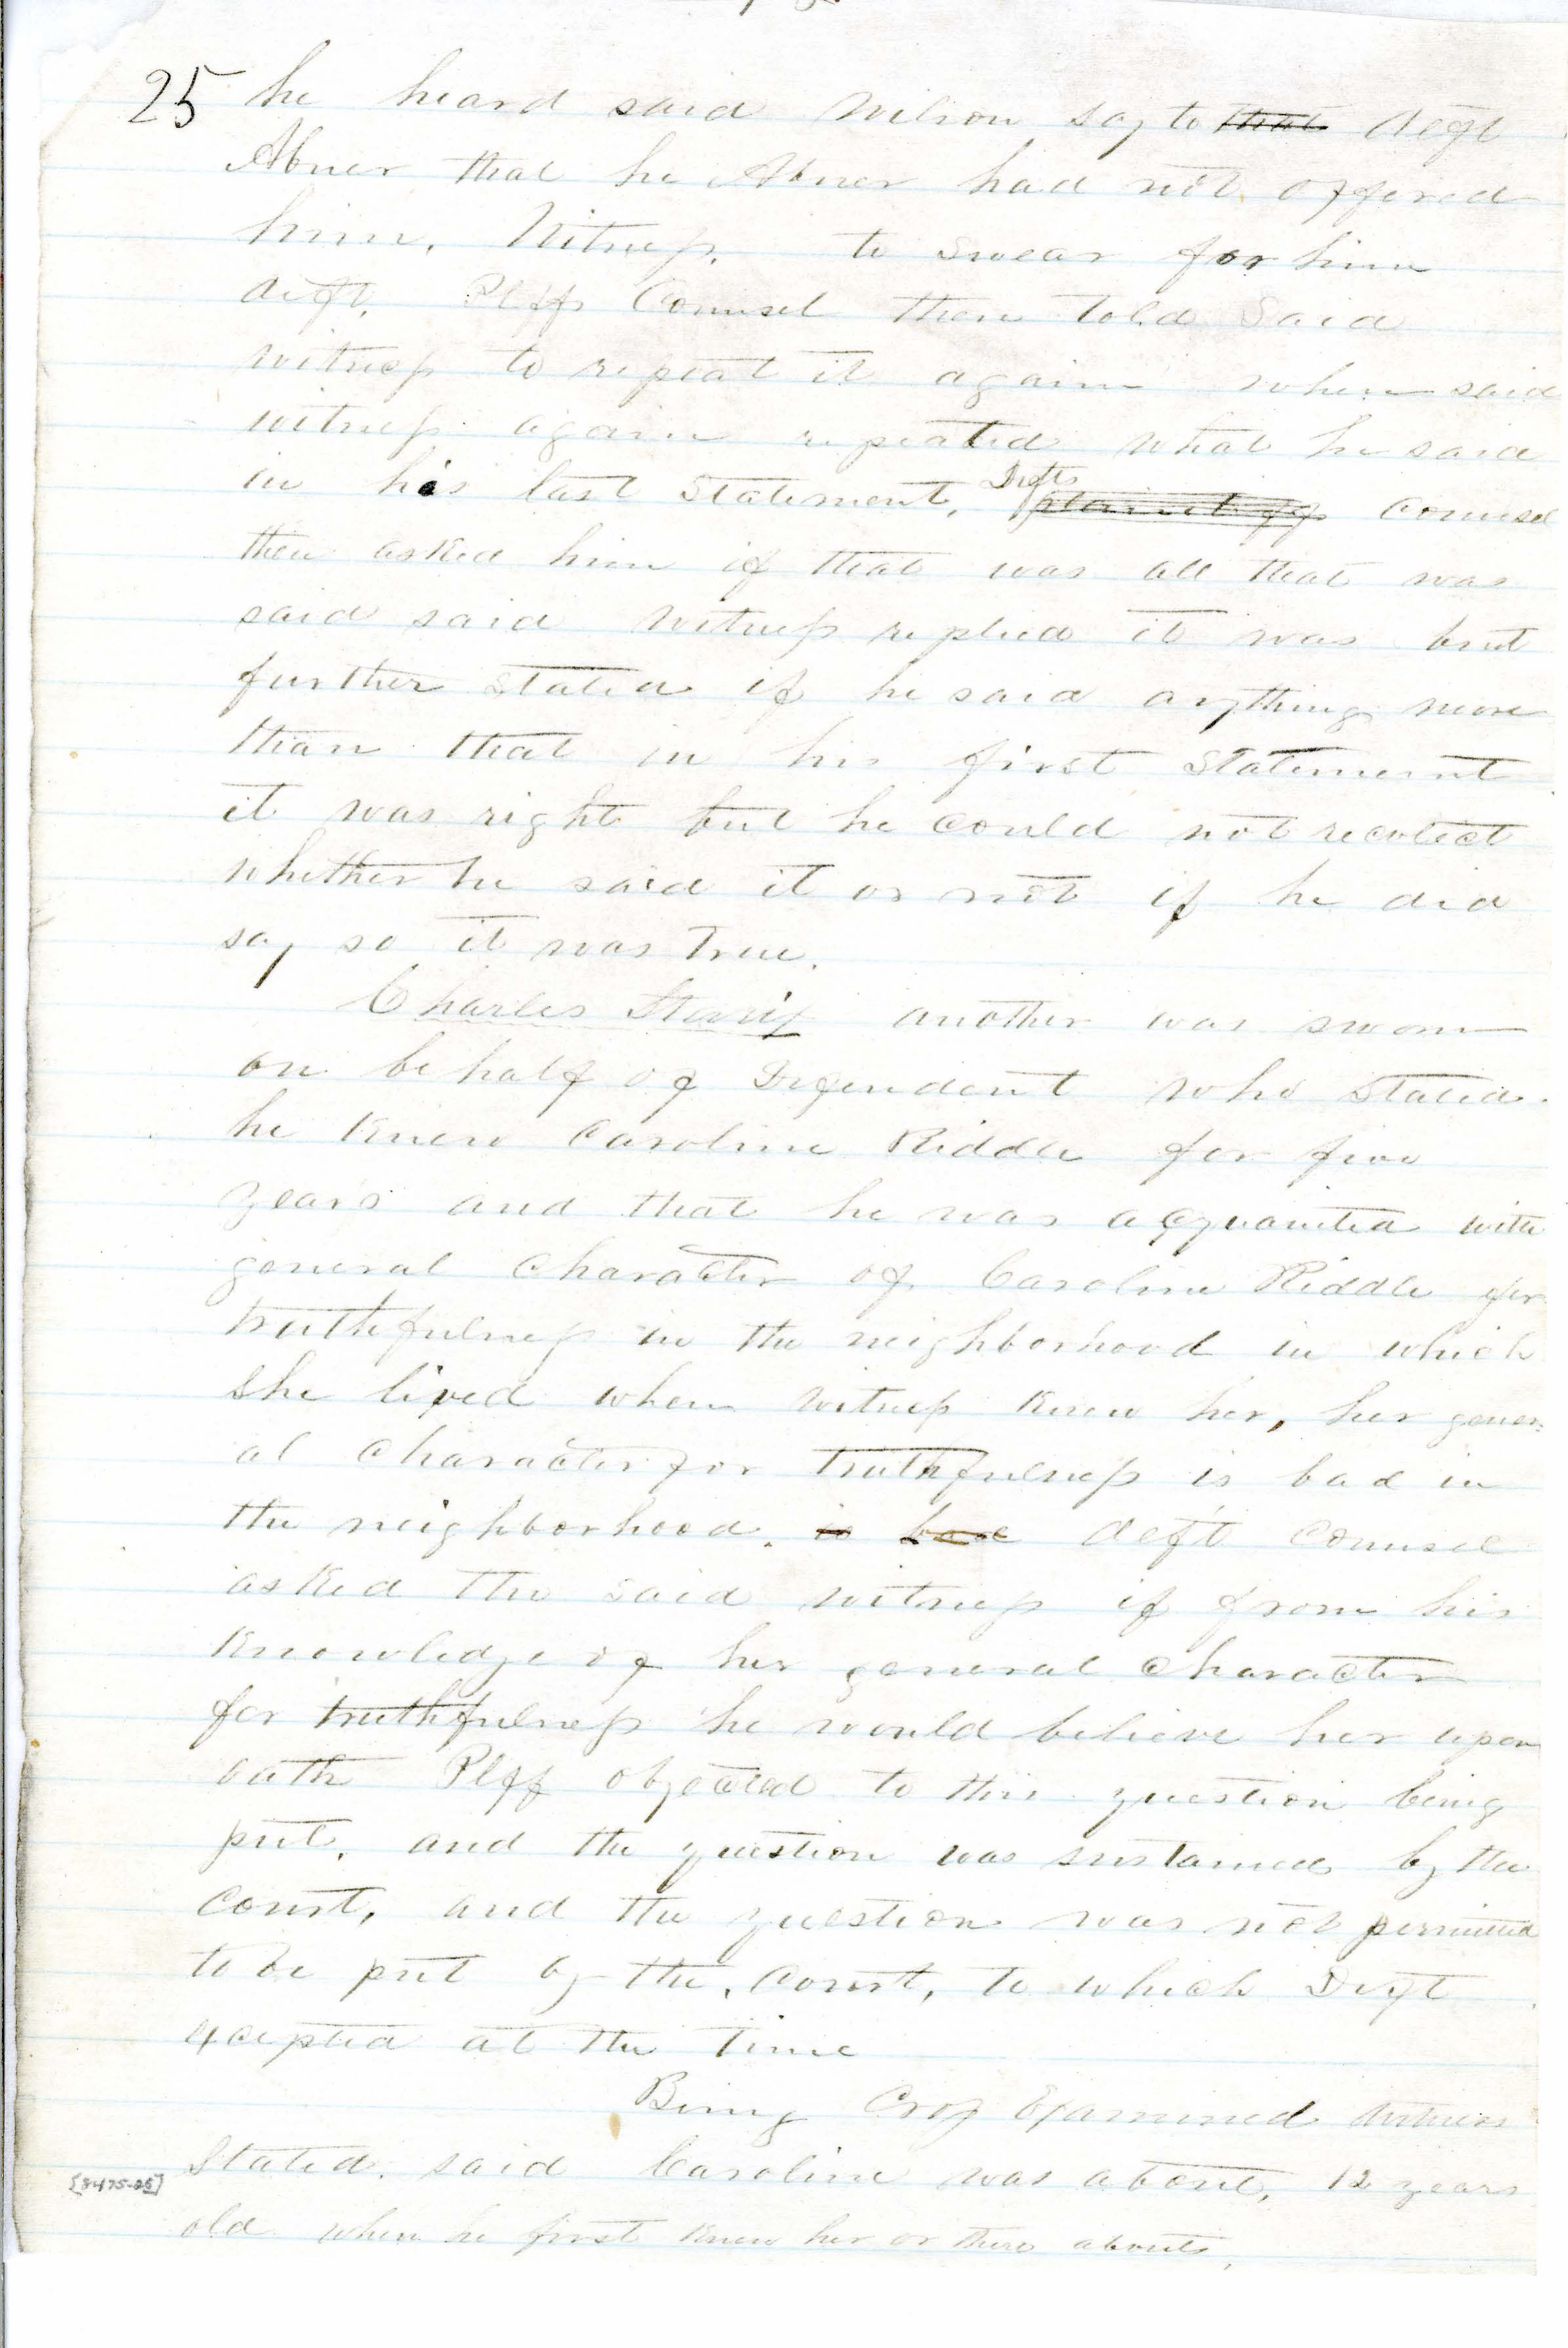 25 he heard said Wilson say to that deft
Abner that he Abner had not offered
him. Witness. to swear for him
deft. Plffs Counsel then told Said
witness to repeat it again when said
witness again repeated what he said
in his last Statement, Defts plaintiffs Counsel
then asked him if that was all that was
said said witness replied it was but
further stated if he said anything more
than that in his first Statement
it was right but he could not recolect
whether he said it or not if he did
say so it was True.
Charles another was sworn
on behalf of Defendant who Stated.
he Knew Caroline Riddle for five
years and that he was acquainted with
general Character of Caroline Riddle for
truthfulness in the neighborhood in which
she lived when witness Knew her, her gener
al Character for truthfulness is bad in
the neighborhood. is bad deft Counsel
asked the said witness if from his
Knowledge of her general Character
for truthfulness he would believe her upon
oath Plff objected to this question being
put. and the question was sustained by the
Court, and the question was not permitted
to be put by the, Court, to which Deft
excepted at the time
Being Cross Examined witness
Stated. said Caroline was about, 12 years
[8475-25]
old when he first Knew her or there abouts,